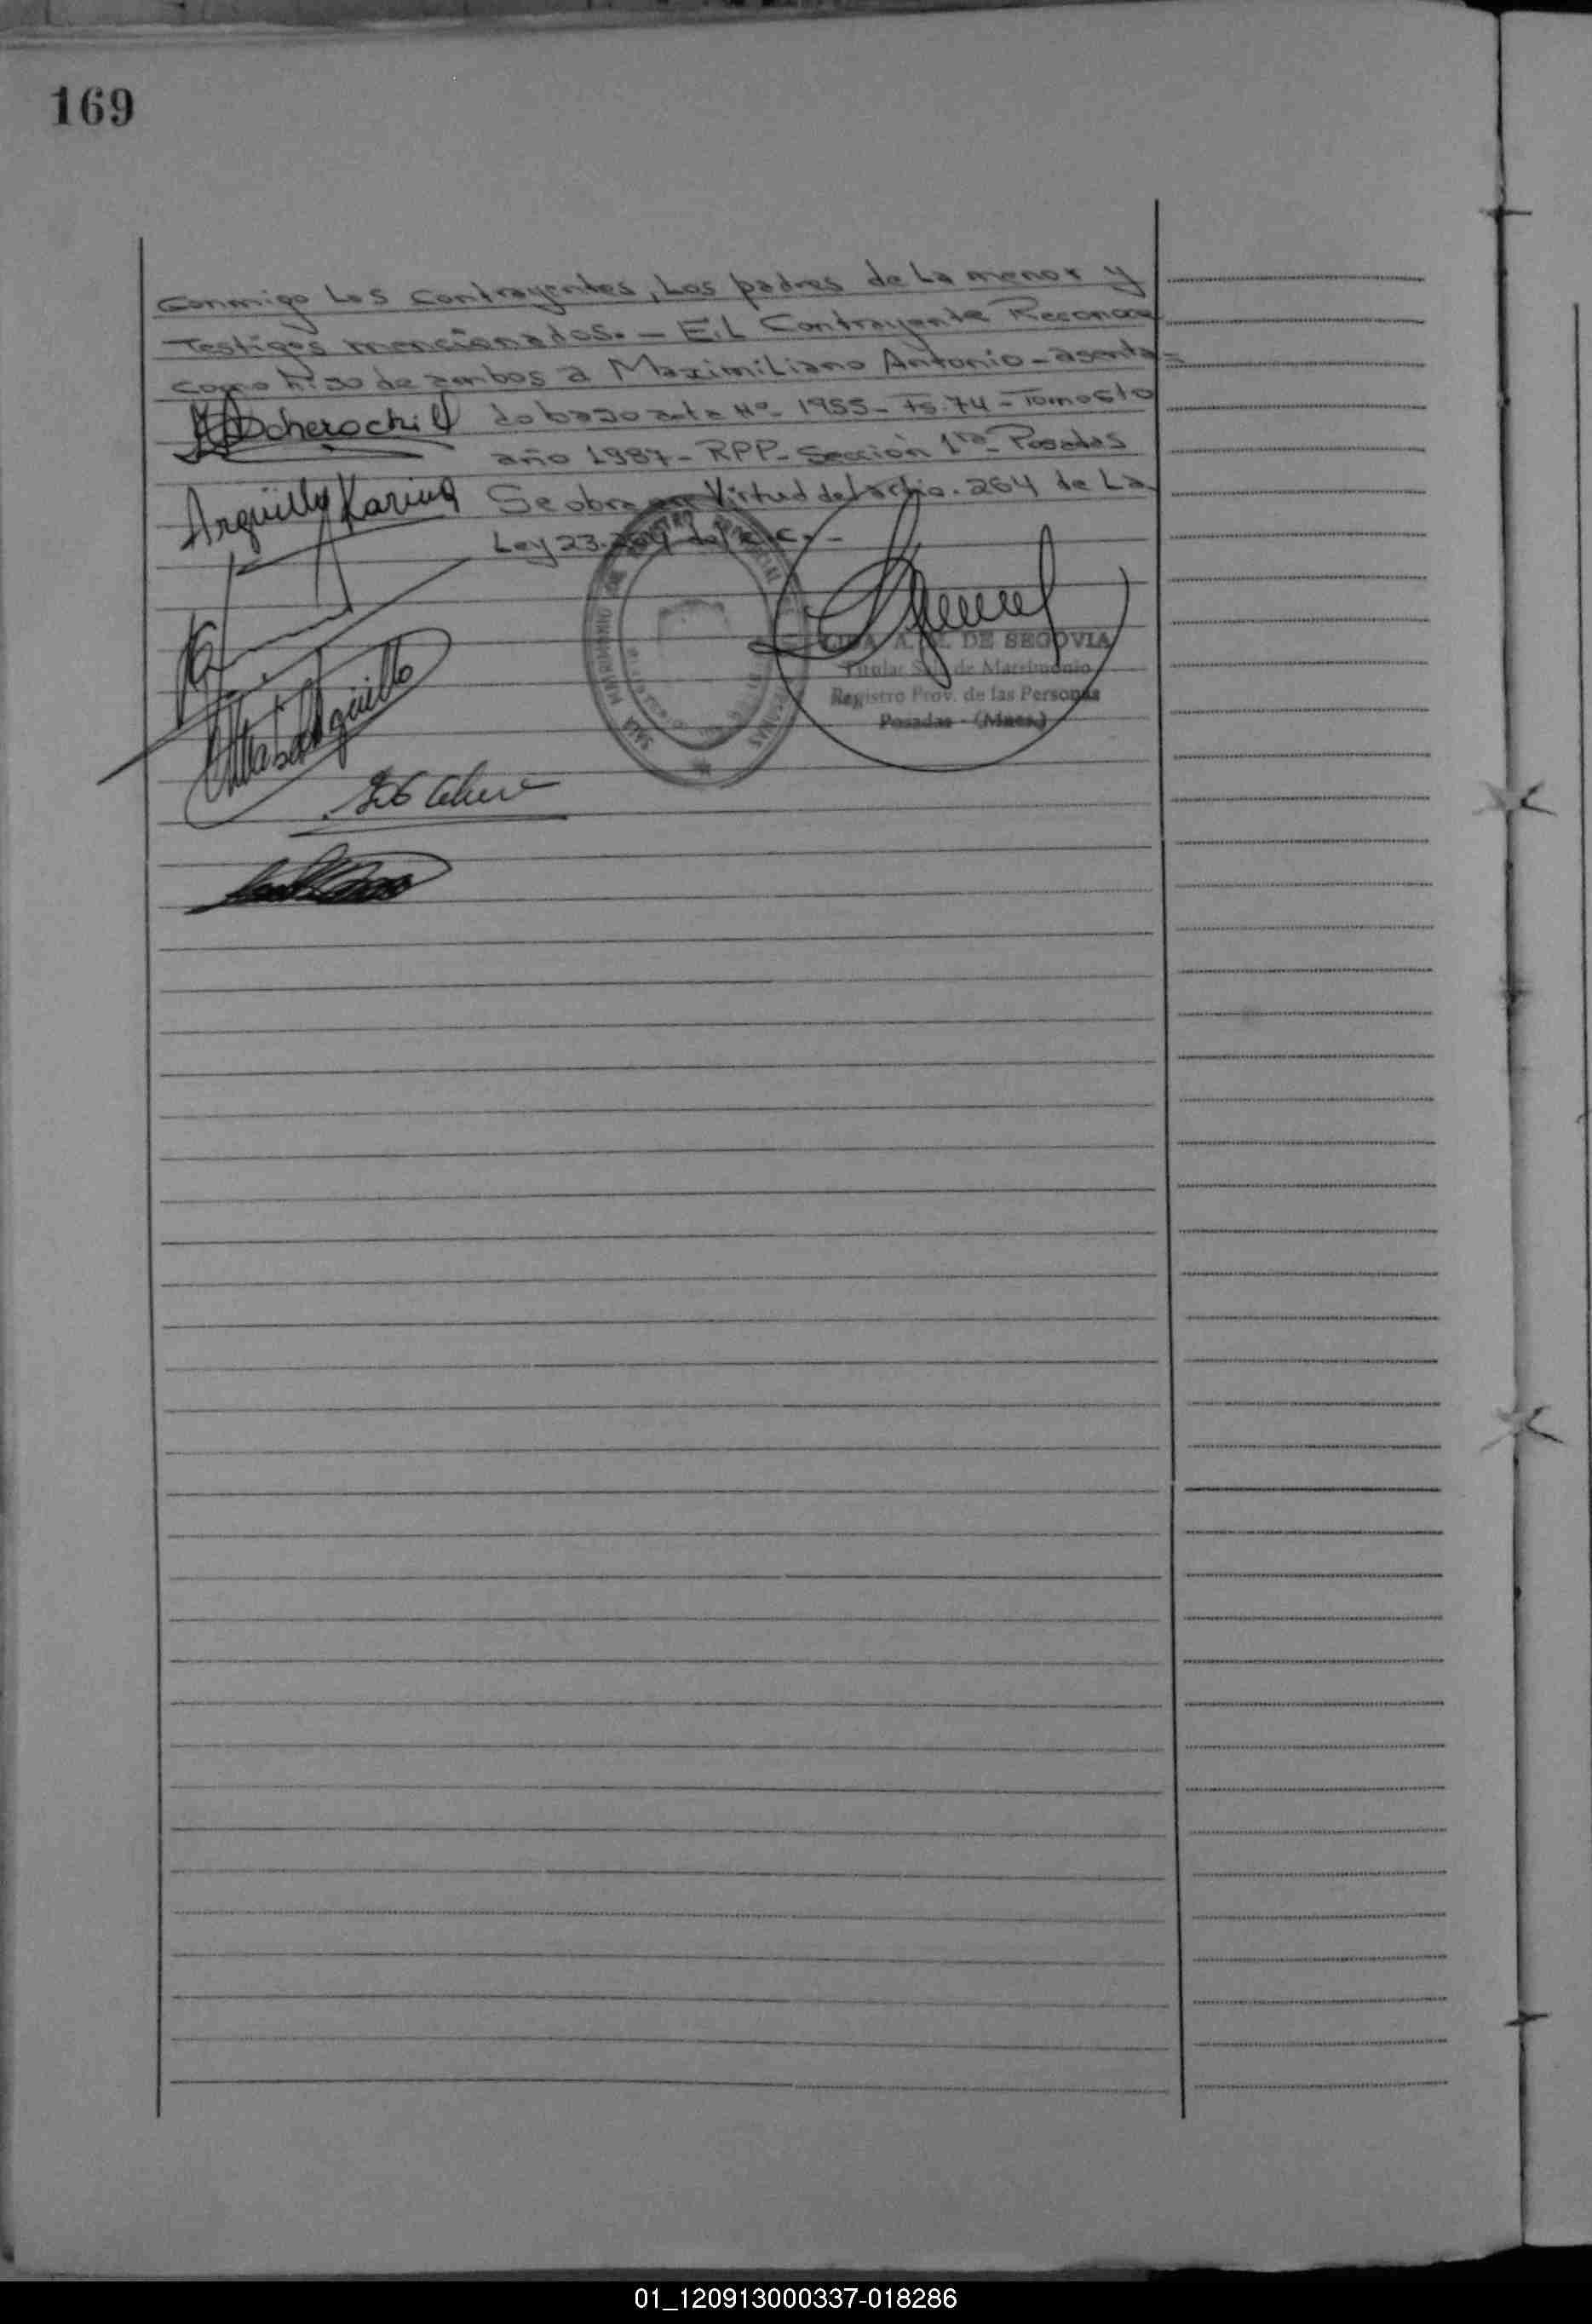 169
Conmigo Los Contrayentes, Los padres de La menor y
Testigos mencionados. - El Contrayente Reconoce
como hijo de ambos a Maximiliano Antonio - asenta=
do bajo acta Nº 1955 - Fs. 74 - Tomo 6to
año 1987 - RPP - Sección 1ra - Posadas
Argüello Karina
Se obra en Virtud del artio. 264 de La
Ley 23.264 del C.C. -
A. DE SEGOVIA
Titular Sala de Matrimonio
Registro Prov. de las Personas
Posadas - (Mnes.)
SALA MATRIMONIO
Argüello
01_120913000337-018286